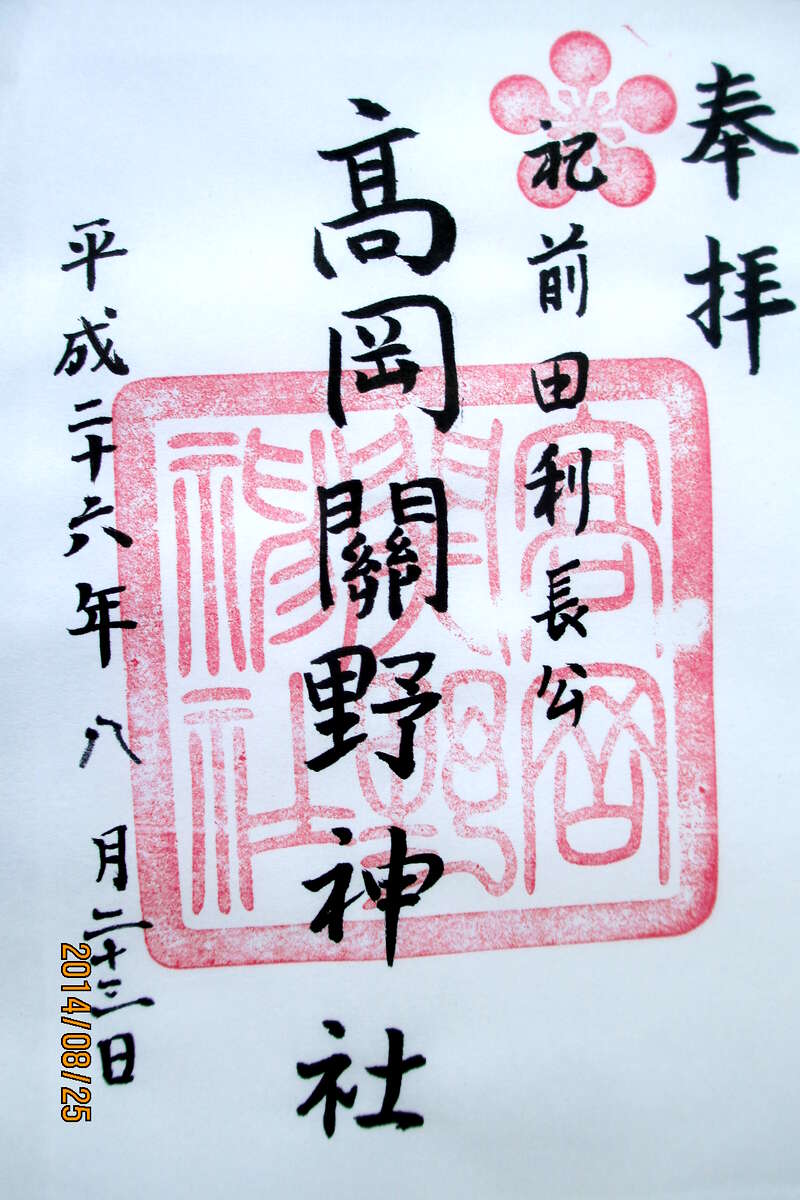 奉拝
祀前田利長公
高岡關野神社
平成二十六年八月二十三日
高岡
關野
神社
2014/08/25